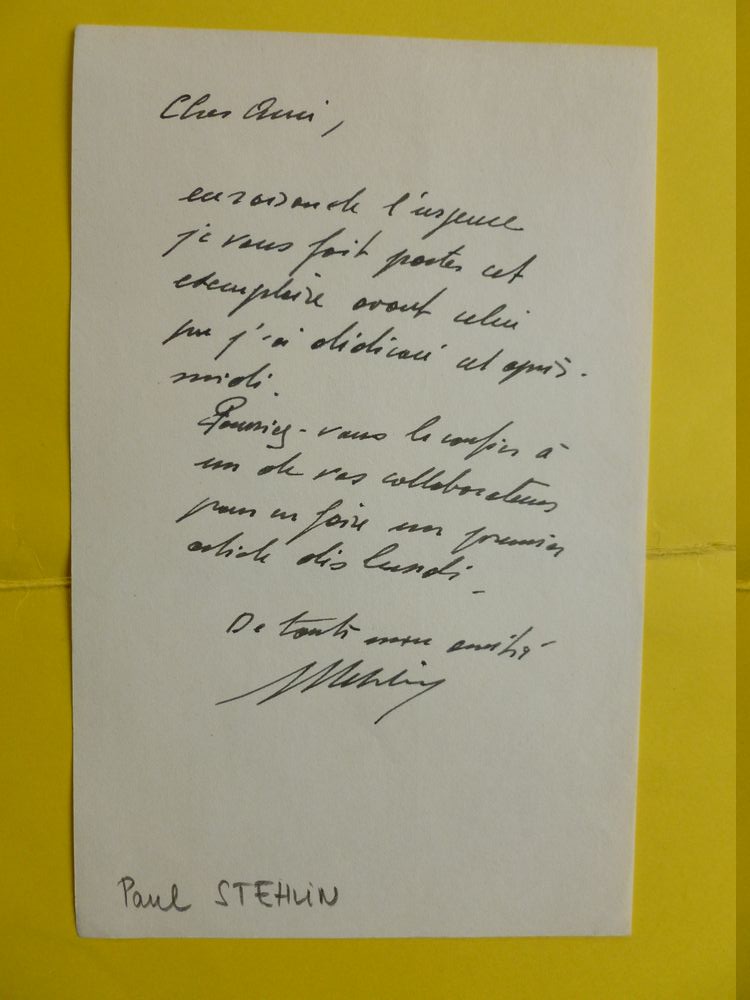 Cher Ami,
en raison de l'urgence
je vous fait porter cet
exemplaire avant celui
que j'ai dédicacé cet après-
midi.
Pourriez-vous le confier à
un de vos collaborateurs
pour en faire un premier
article dès lundi.
De toute mon amitié
Stehlin
Paul STEHLIN